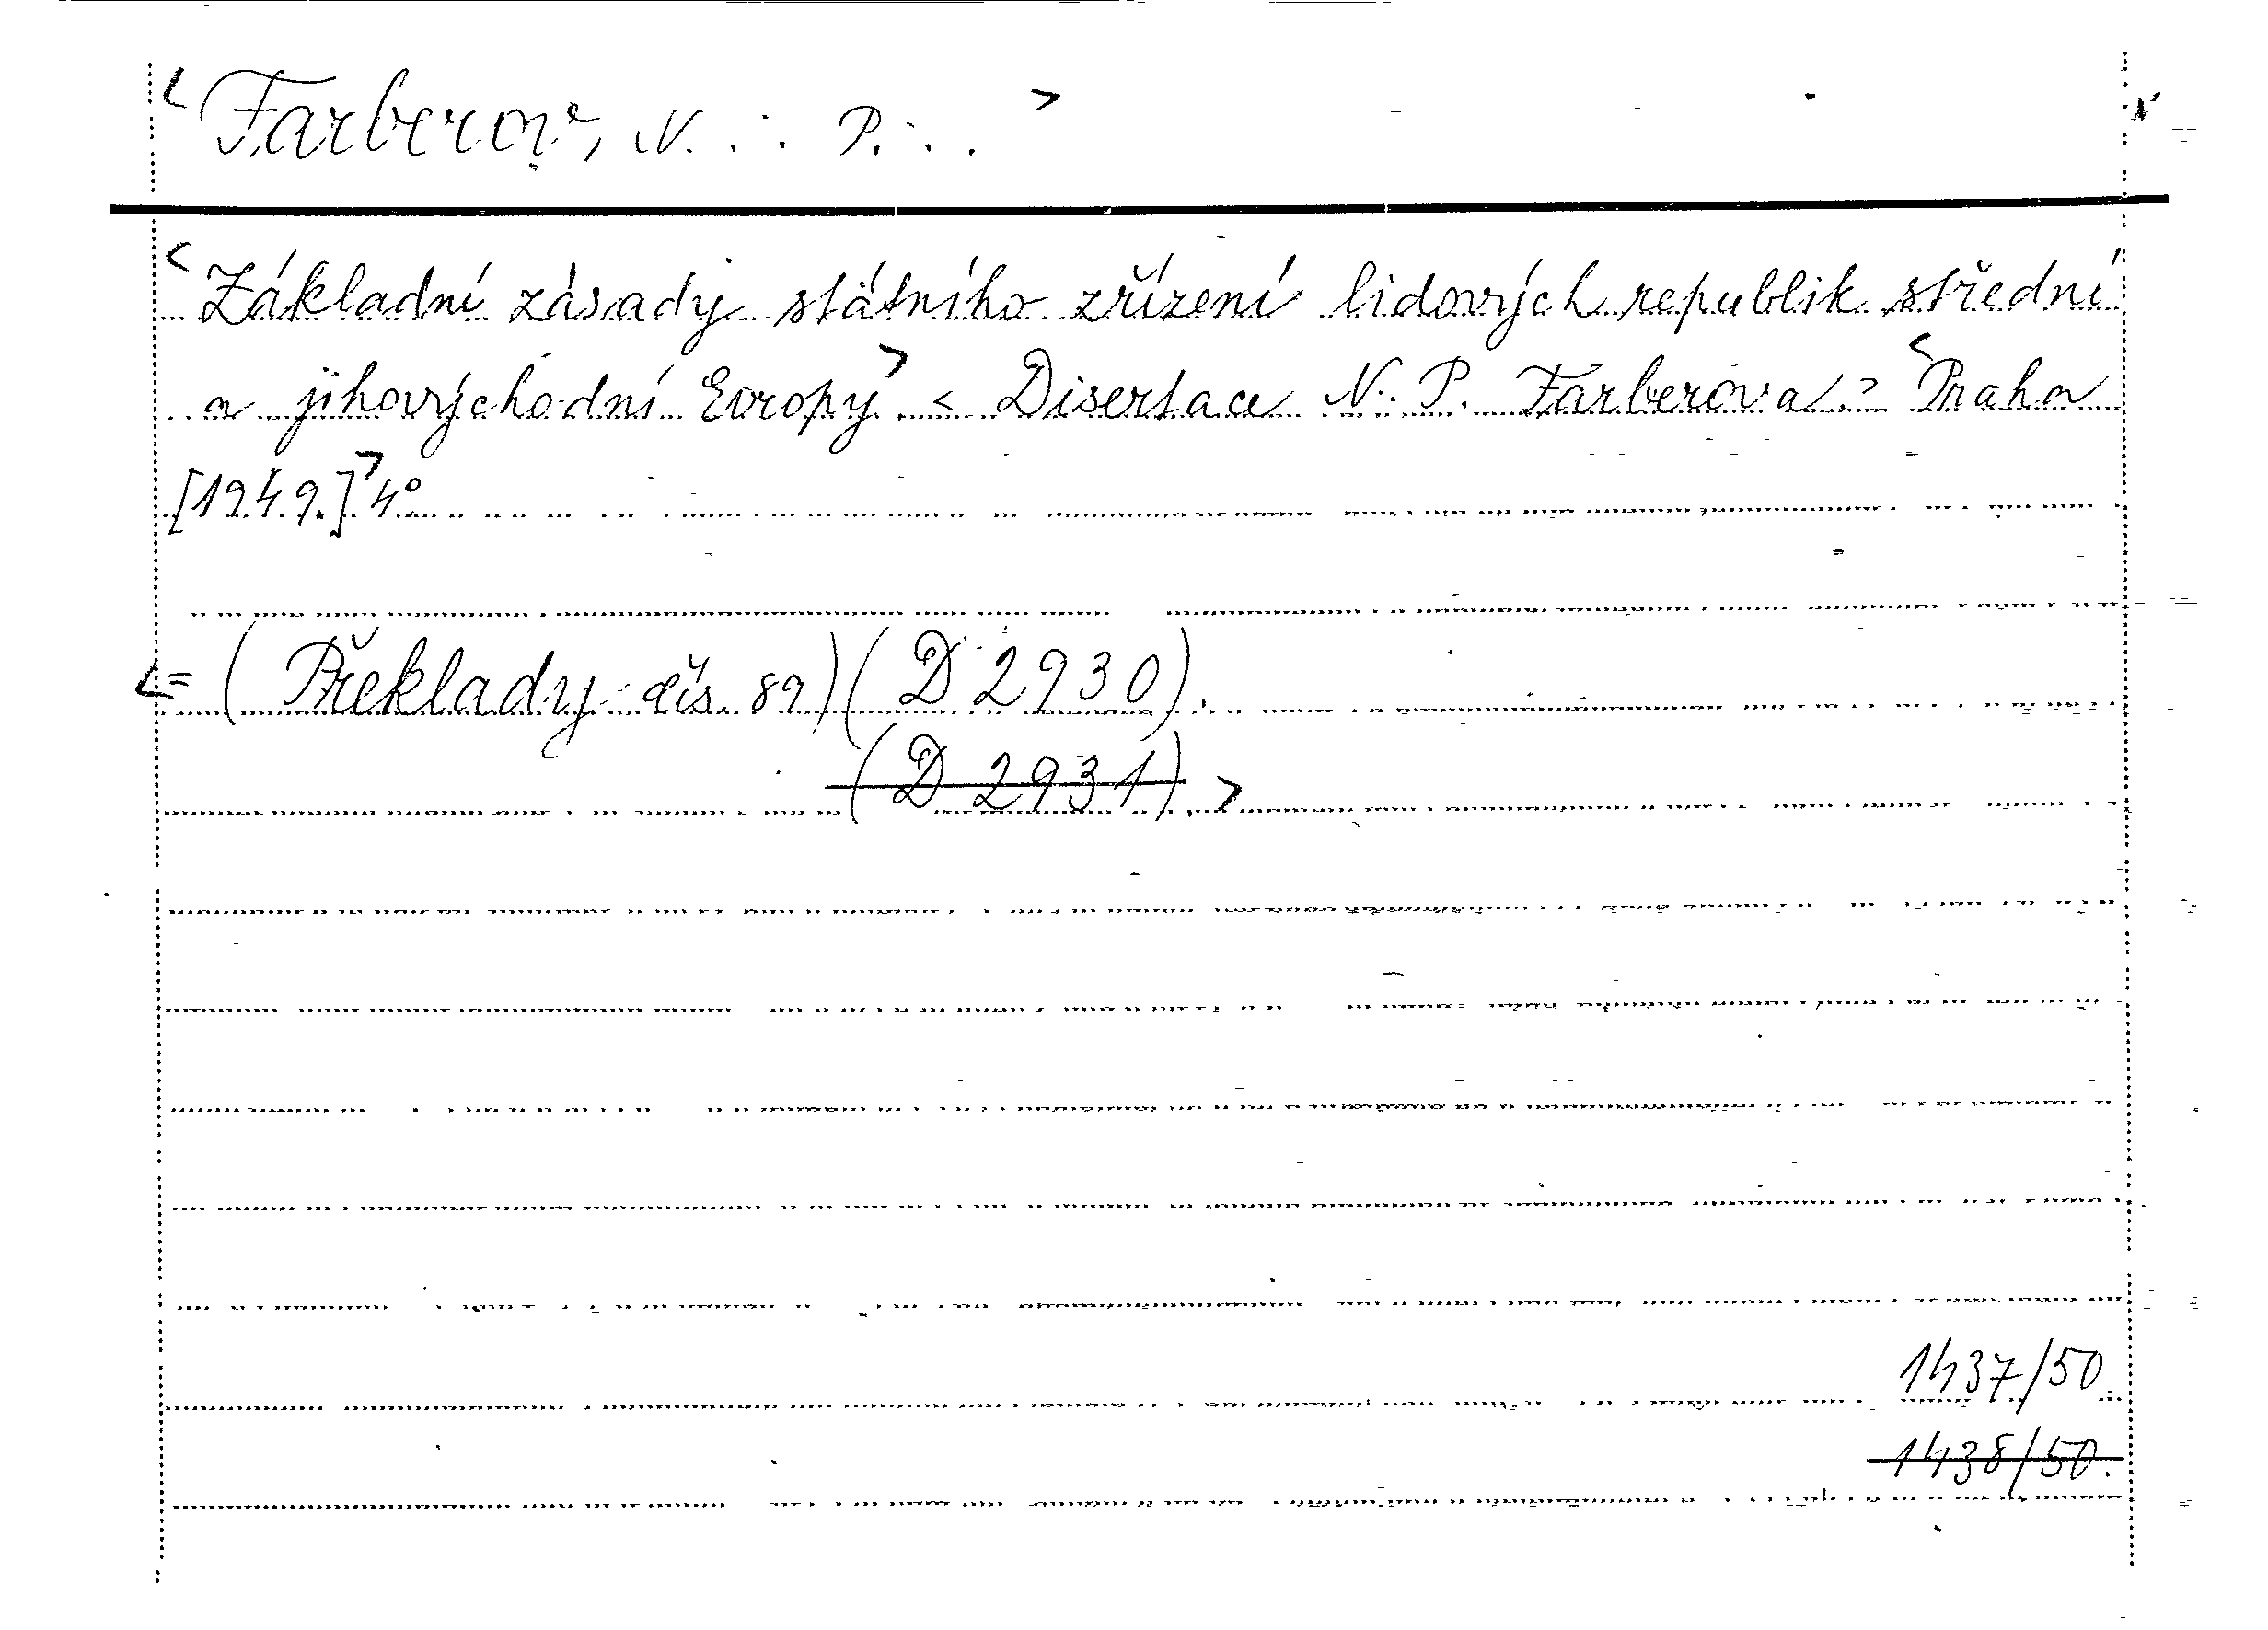 <Farberov, N. : P. : . >
<Základní zásady státního zřízení lidových republik střední
a jihovýchodní Evropy> <Disertace N. P. Farberova> <Praha
[1949.]> 4°
<= (Překlady čís. 89) (D 2930).
(D 2931).>
1437/50.
1438/50.